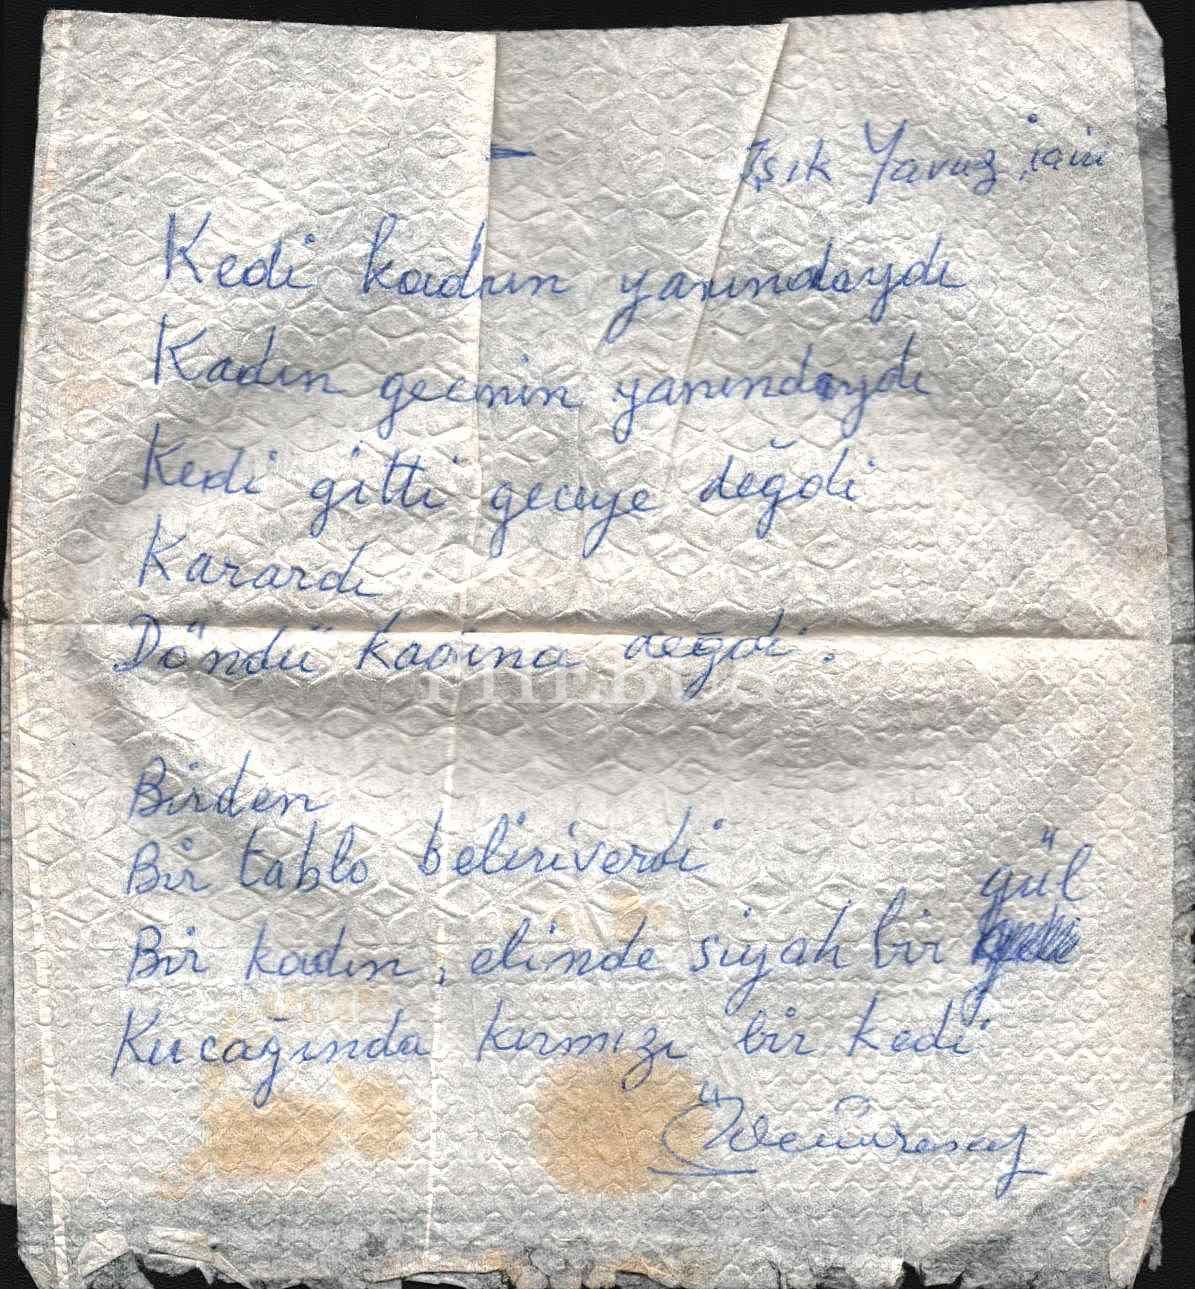 Işık Yavuz için
Kedi kadının yanındaydı
Kadın gecenin yanındaydı
Kedi gitti geceye değdi
Karardı
Döndü kadına değdi.
Birden
Bir tablo beliriverdi
gül
Bir kadın, elinde siyah bir
Kucağında kırmızı bir kedi